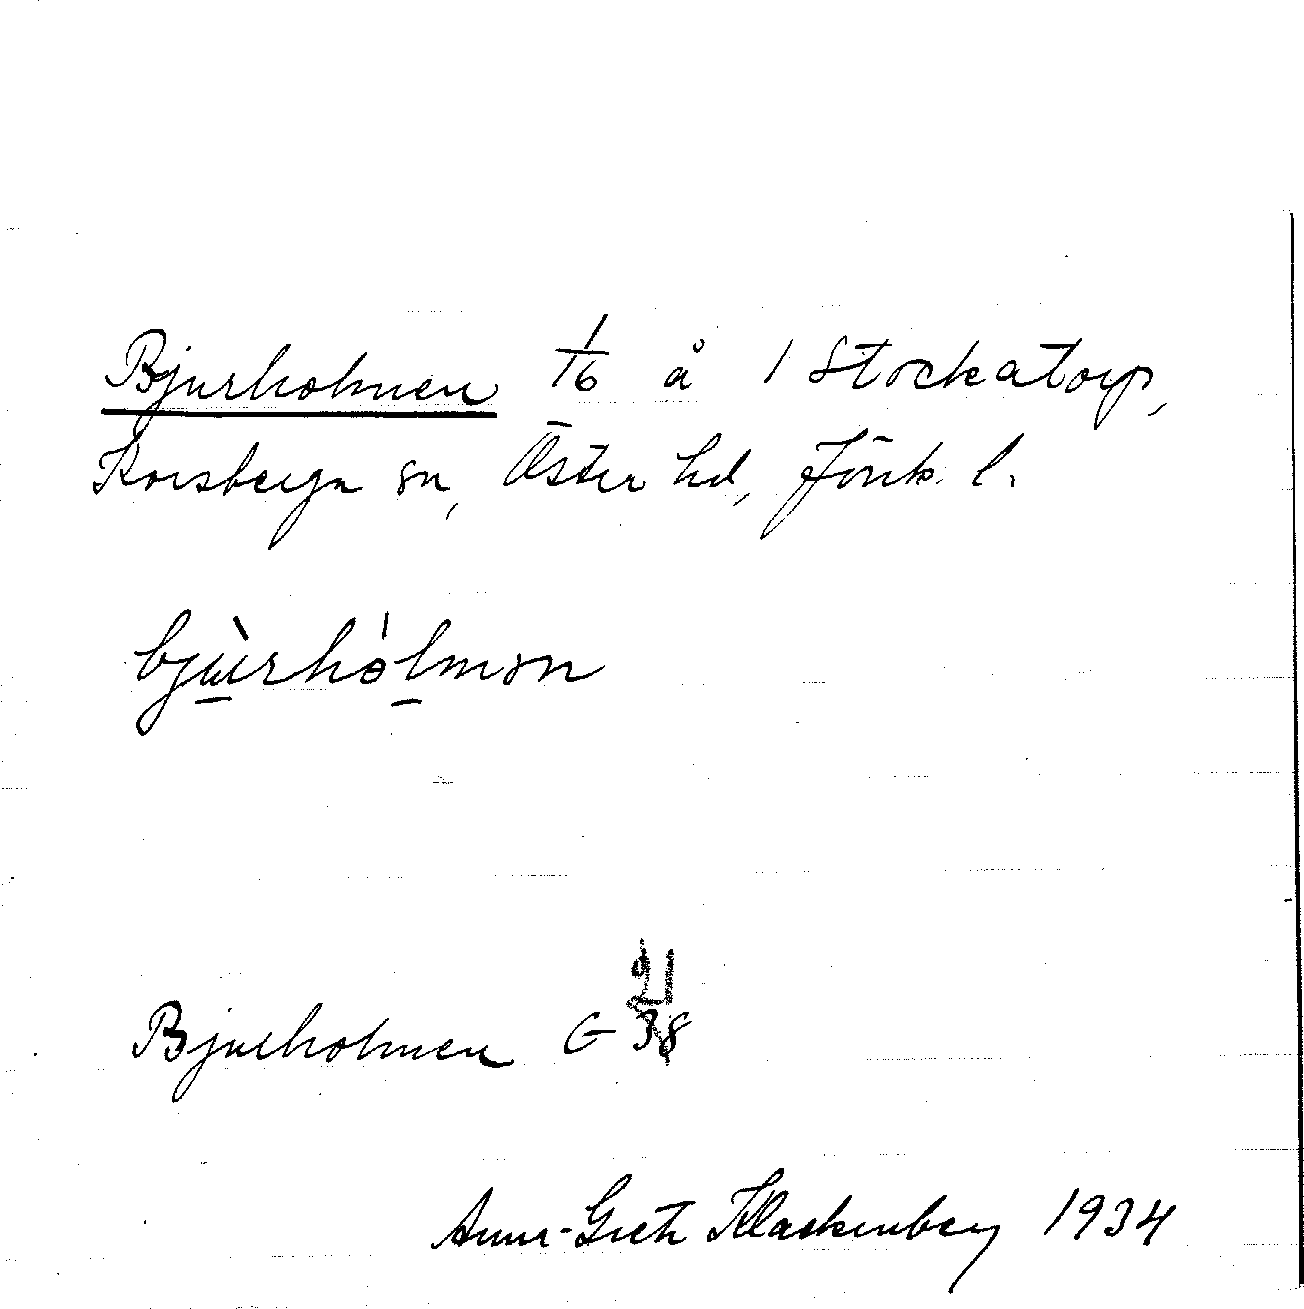 Bjurholmen 1/16 å 1 Stockatorp,
Korsberga sn, Öster hd, Jönk. l.
bjùrhólmən
Bjurholmen G 38
21
Anna-Greta Klackenberg 1934